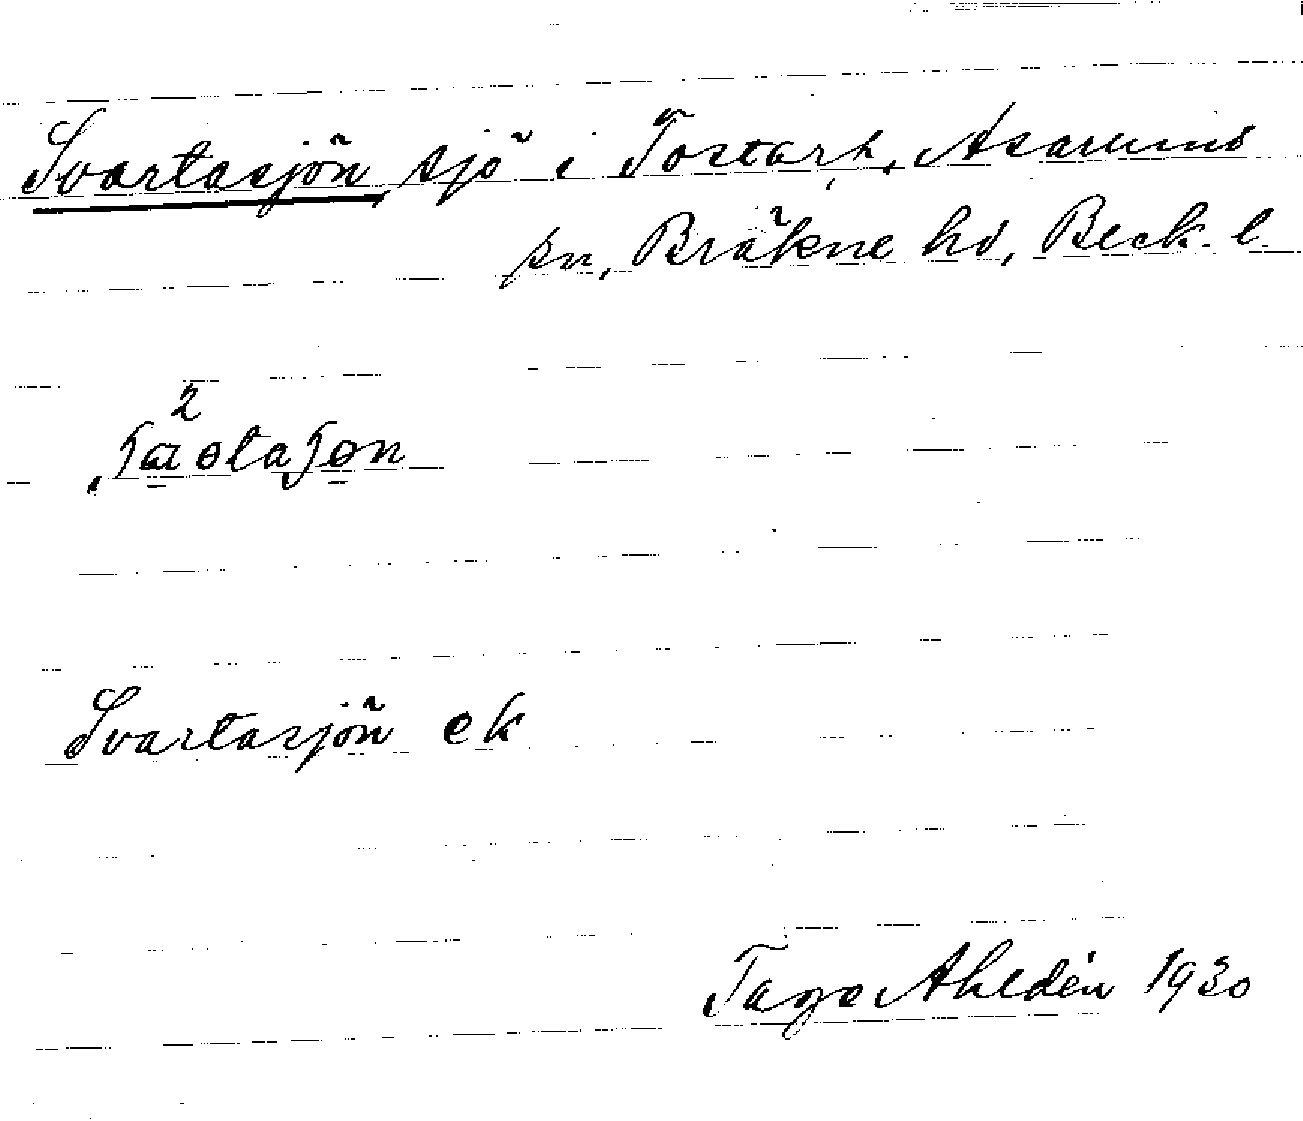 Svartasjön, sjö i Tostarp, Asarums
sn, Bräkne hd, Bleck. l.
Svartasjön ek
Tage Ahldén 1930